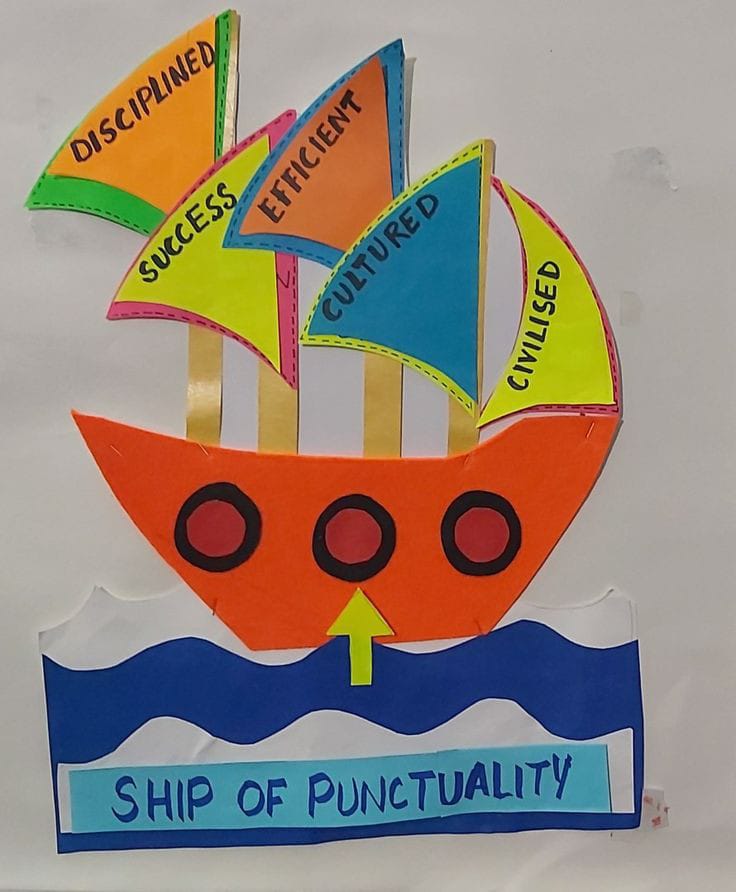 DISCIPLINED
SUCCESS
EFFICIENT
CULTURED
CIVILISED
SHIP OF PUNCTUALITY